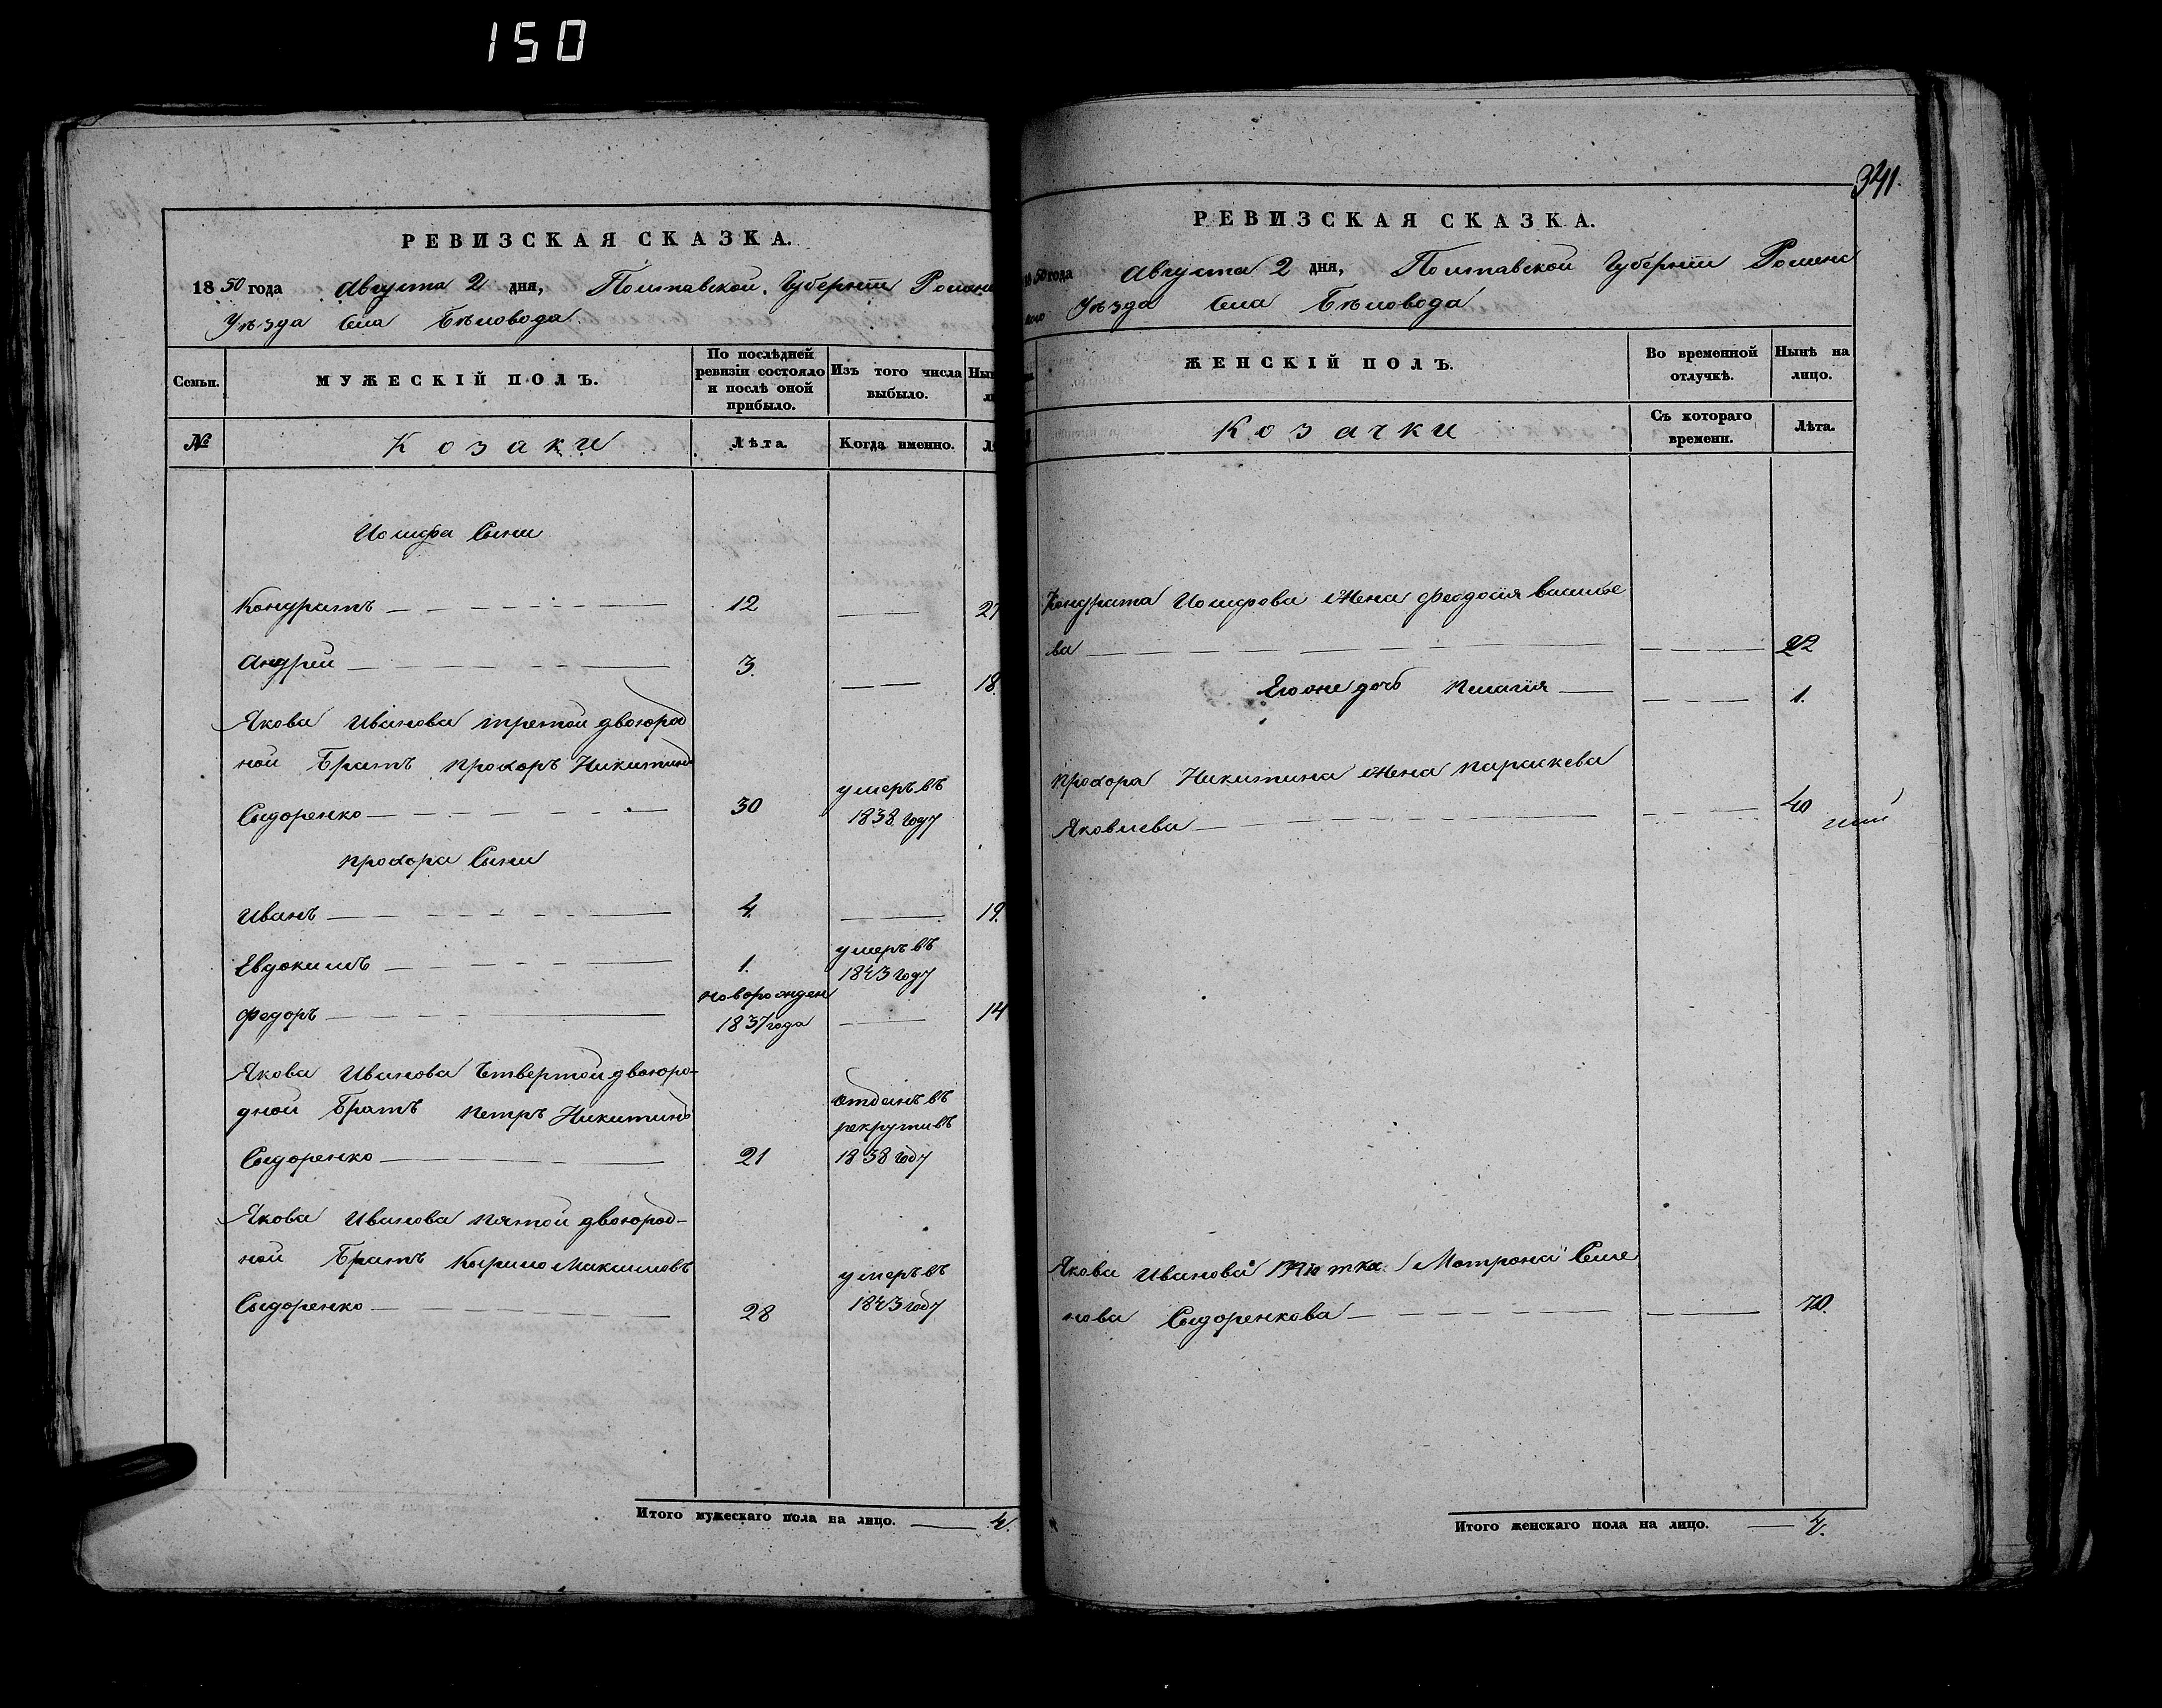 150
РЕВИЗСКАЯ СКАЗКА.
1850 года Августа 2 дня, Полтавской Губернiи Роменс
Уѣзда Села Бѣловода
Семьи.
МУЖЕСКІЙ ПОЛЪ.
По послѣдней
ревизіи состояло
и послѣ оной
прибыло.
Изъ того числа
выбыло.
№
Козаки
Лѣта.
Когда именно.
Иосифа Сыни
Кондратъ 12 27
Андрей 3. 18.
Якова Иванова третой двоюрод
ной Братъ Прохоръ Никитинъ
Сыдоренко 30 умеръ въ
1838 году
Прохора Сыни
Иванъ 4. 19.
Евдокимъ 1. умеръ въ
1843 году
Федоръ новорожден
1837 года 14
Якова Иванова Четвертой двоюро-
дной Братъ Петръ Никитинъ
Сыдоренко 21 отданъ въ
рекруты въ
1838 году
Якова Иванова пятой двоюрод-
ной Братъ Кырило Максимовъ
Сыдоренко 28 умеръ въ
1843 году
Итого мужескаго пола на лицо. 4.
341.
РЕВИЗСКАЯ СКАЗКА.
1850 года Августа 2 дня, Полтавской Губернiи Роменс
Уѣзда Села Бѣловода
ЖЕНСКІЙ ПОЛЪ.
Во временной
отлучкѣ.
Нынѣ на
лицо.
Козачки
Съ котораго
времени.
Лѣта.
Кондрата Иосифова Жена Феодосия Василье
ва 22
Его же дочь Пелагия 1.
Прохора Никитина Жена Параскева
Яковлева 40
Якова Иванова тютка Мотрона Семе
нова Сыдоренкова 70.
Итого женскаго пола на лицо. 4.